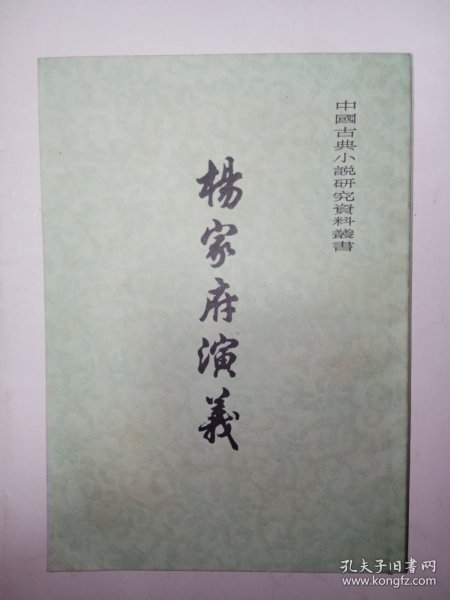 中國古典小説研究資料叢書
楊家府演義
孔夫子旧書网
www.kongfz.com